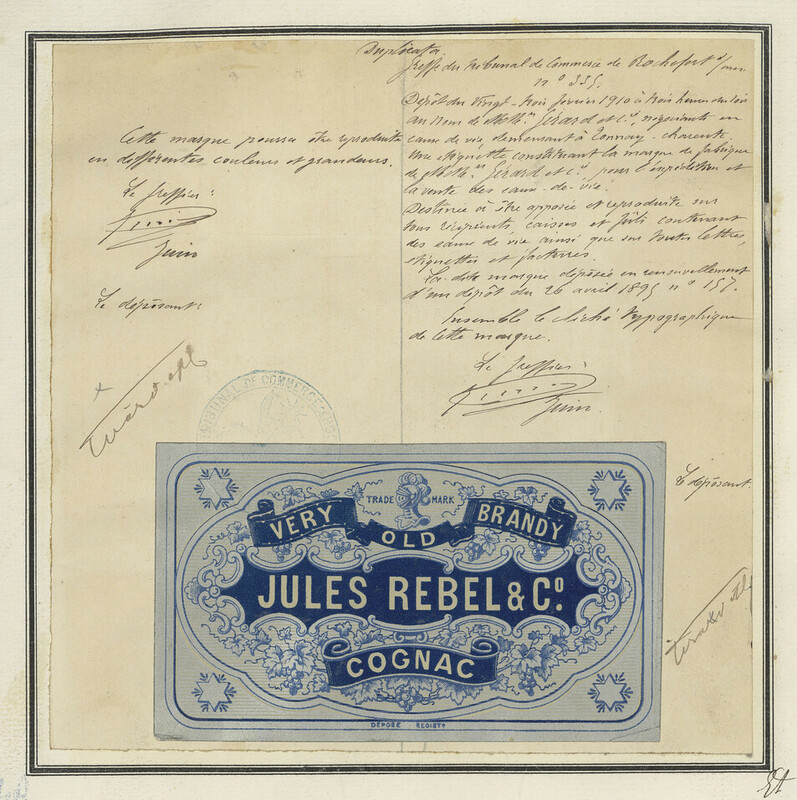 Duplicata
Greffe du Tribunal de Commerce de Rochefort s/mer
n° 335.
Dépôt du vingt-trois février 1910 à trois heures du soir
au nom de MM. Gérard et Cie négociants en
eaux de vie, demeurant à Tonnay-Charente.
Une étiquette constituant la marque de fabrique
de MM. Gérard et Cie pour l'expédition et
la vente des eaux-de-vie.
Destinée à être apposée et reproduite sur
tous récipients, caisses et fûts contenant
des eaux de vie ainsi que sur toutes lettres,
étiquettes et factures.
La dite marque déposée en renouvellement
d'un dépôt du 26 avril 1895 n° 157.
Ensemble le cliché typographique
de cette marque.
Le greffier:
Le déposant.
Cette marque pourra être reproduite
en différentes couleurs et grandeurs.
Le greffier:
Le déposant:
TRIBUNAL DE COMMERCE
TRADE MARK
VERY OLD BRANDY
JULES REBEL & Co.
COGNAC
DÉPOSÉ REGISTd